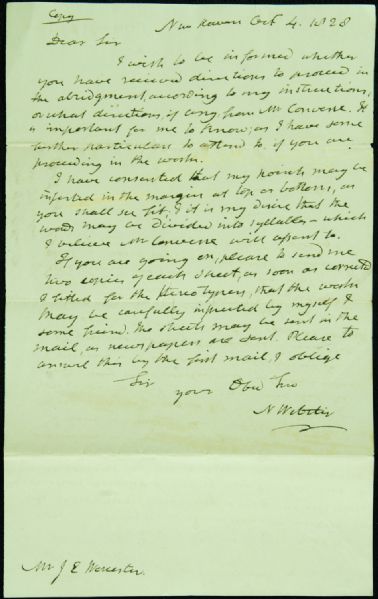 Copy
New Haven Oct 4. 1828
Dear Sir
I wish to be informed whether
you have received directions to proceed in
the abridgment, according to my instructions,
or what directions, if any, from Mr Converse. It
is important for me to know, as I have some
further particulars to attend to if you are
proceeding in the work.
I have consented that my points may be
inserted in the margin at top or bottom, as
you shall see fit. & it is my desire that the
words may be divided into syllables - which
I believe Mr Converse will assent to.
If you are going on, please to send me
two copies of each sheet, as soon as corrected
& fitted for the stereotypers, that the work
may be carefully inspected by myself &
some friend. The sheets may be sent in the
mail, as newspapers are sent. Please to
answer this by the first mail, & oblige
Sir
your Obed Serv
N Webster
Mr J E Worcester.